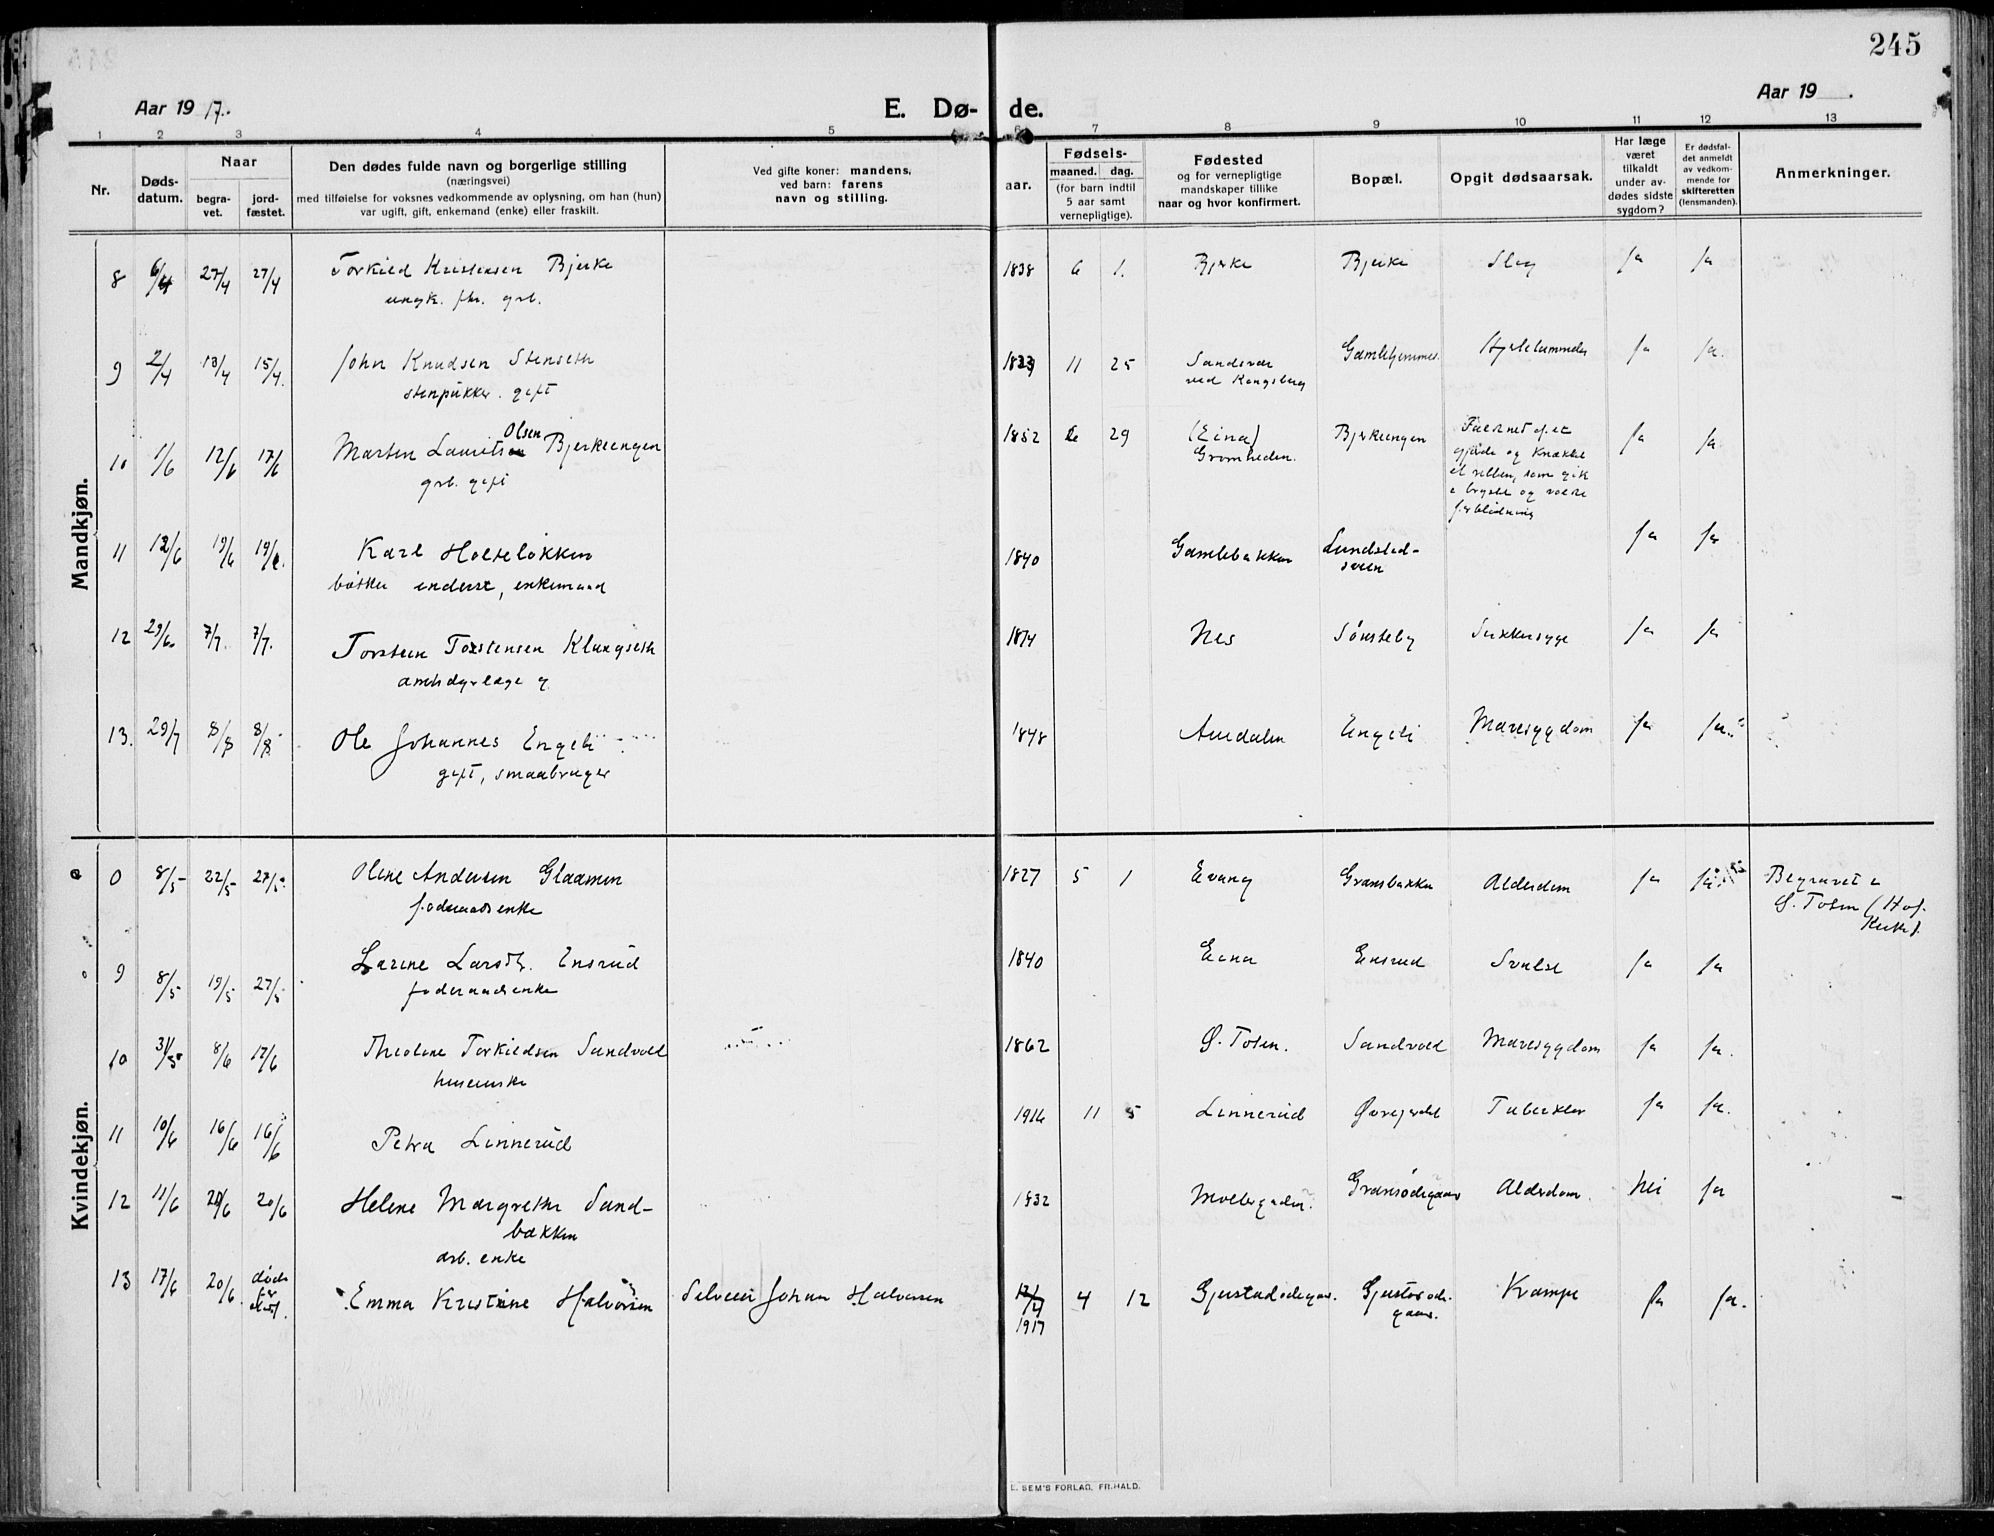 245
Aar 1917.
E. Dø- de.
Aar 19
1 2 3 4 5 6 7 8 9 10 11 12 13
Nr.
Døds-
datum.
Naar
begra-
vet.
jord-
fæstet.
Den dødes fulde navn og borgerlige stilling
(næringsvei)
med tilføielse for voksnes vedkommende av oplysning, om han (hun)
var ugift, gift, enkemand (enke) eller fraskilt.
Ved gifte koner: mandens,
ved barn: farens
navn og stilling.
Fødsels-
aar.
maaned.
dag.
(for barn indtil
5 aar samt
vernepligtige).
Fødested
og for vernepligtige
mandskaper tillike
naar og hvor konfirmert.
Bopæl.
Opgit dødsaarsak.
Har læge
været
tilkaldt
under av-
dødes sidste
sygdom?
Er dødsfal-
det anmeldt
av vedkom-
mende for
skifteretten
(lensmanden).
Anmerkninger.
Mandkjøn.
8 6/4 27/4 27/4 Torkild Kristensen Bjerke 1838 6 1. Bjerke Bjerke Slag Ja Ja
ungk. fhr. grb.
9 2/4 13/4 15/4. John Knudsen Stenseth 11 25 Sandsvær Gamlehjemmet Ja Ja.
ved Kongsberg
stenpukker. gift
10 1/6 12/6 17/6 Marten Laurits Olsen Bjerkeengen 1852 29 (Eina) Bjerkeengen Ja Ja.
Gromheden.
grb. gift
gjærde og knækket
et ribben, som gik
i brystet og voldte
forblødning
11 12/6 19/6 19/6. Karl Holteløkken 1840 Gamlebakken Lundsted- Ja Ja
sveen
bøtker enderst, enkemand
12 29/6. 7/7. 7/7. Torstein Torstensen Klungseth 1874 Nes Sønsteby Sukkersyge Ja Ja
amtsdyrlæge g.
13. 29/7 8/8 8/8 Ole Johannes Engeli 1848 Aurdalen Engeli Mavesygdom Ja Ja.
gift, smaabruger
Kvindekjøn.
8/5 22/5 27/5 Olene Andersen Glaamen 1827 5 1 Evang Gransbakken Alderdom Ja Ja Begravet i
Ø. Toten (Hof
Kirke).
foderaadsenke
9 8/5 19/5 27/5 Larine Larsdt. Ensrud 1840 Eina Ensrud Svulst Ja Ja
foderaadsenke
10 31/5 8/6 17/6 Theoline Torkildsen Sandvold 1862 Ø. Toten. Sandvold Mavesygdom Ja Ja.
11 10/6 16/6 16/6 Petra Linnerud 1916 11 5 Linnerud Tuberkler Ja Ja.
12 11/6 20/6 20/6 Helene Margrethe Sand- 1832 Alderdom. Nei Ja
bakken
arb. enke
13 17/6 20/6. døde Emma Kristine Halvorsen Johan Halvorsen 12/4 4 12 Gjestadødegaar. Krampe Ja Ja.
1917
gaar.
E. SEM'S FORLAG, FR.HALD.